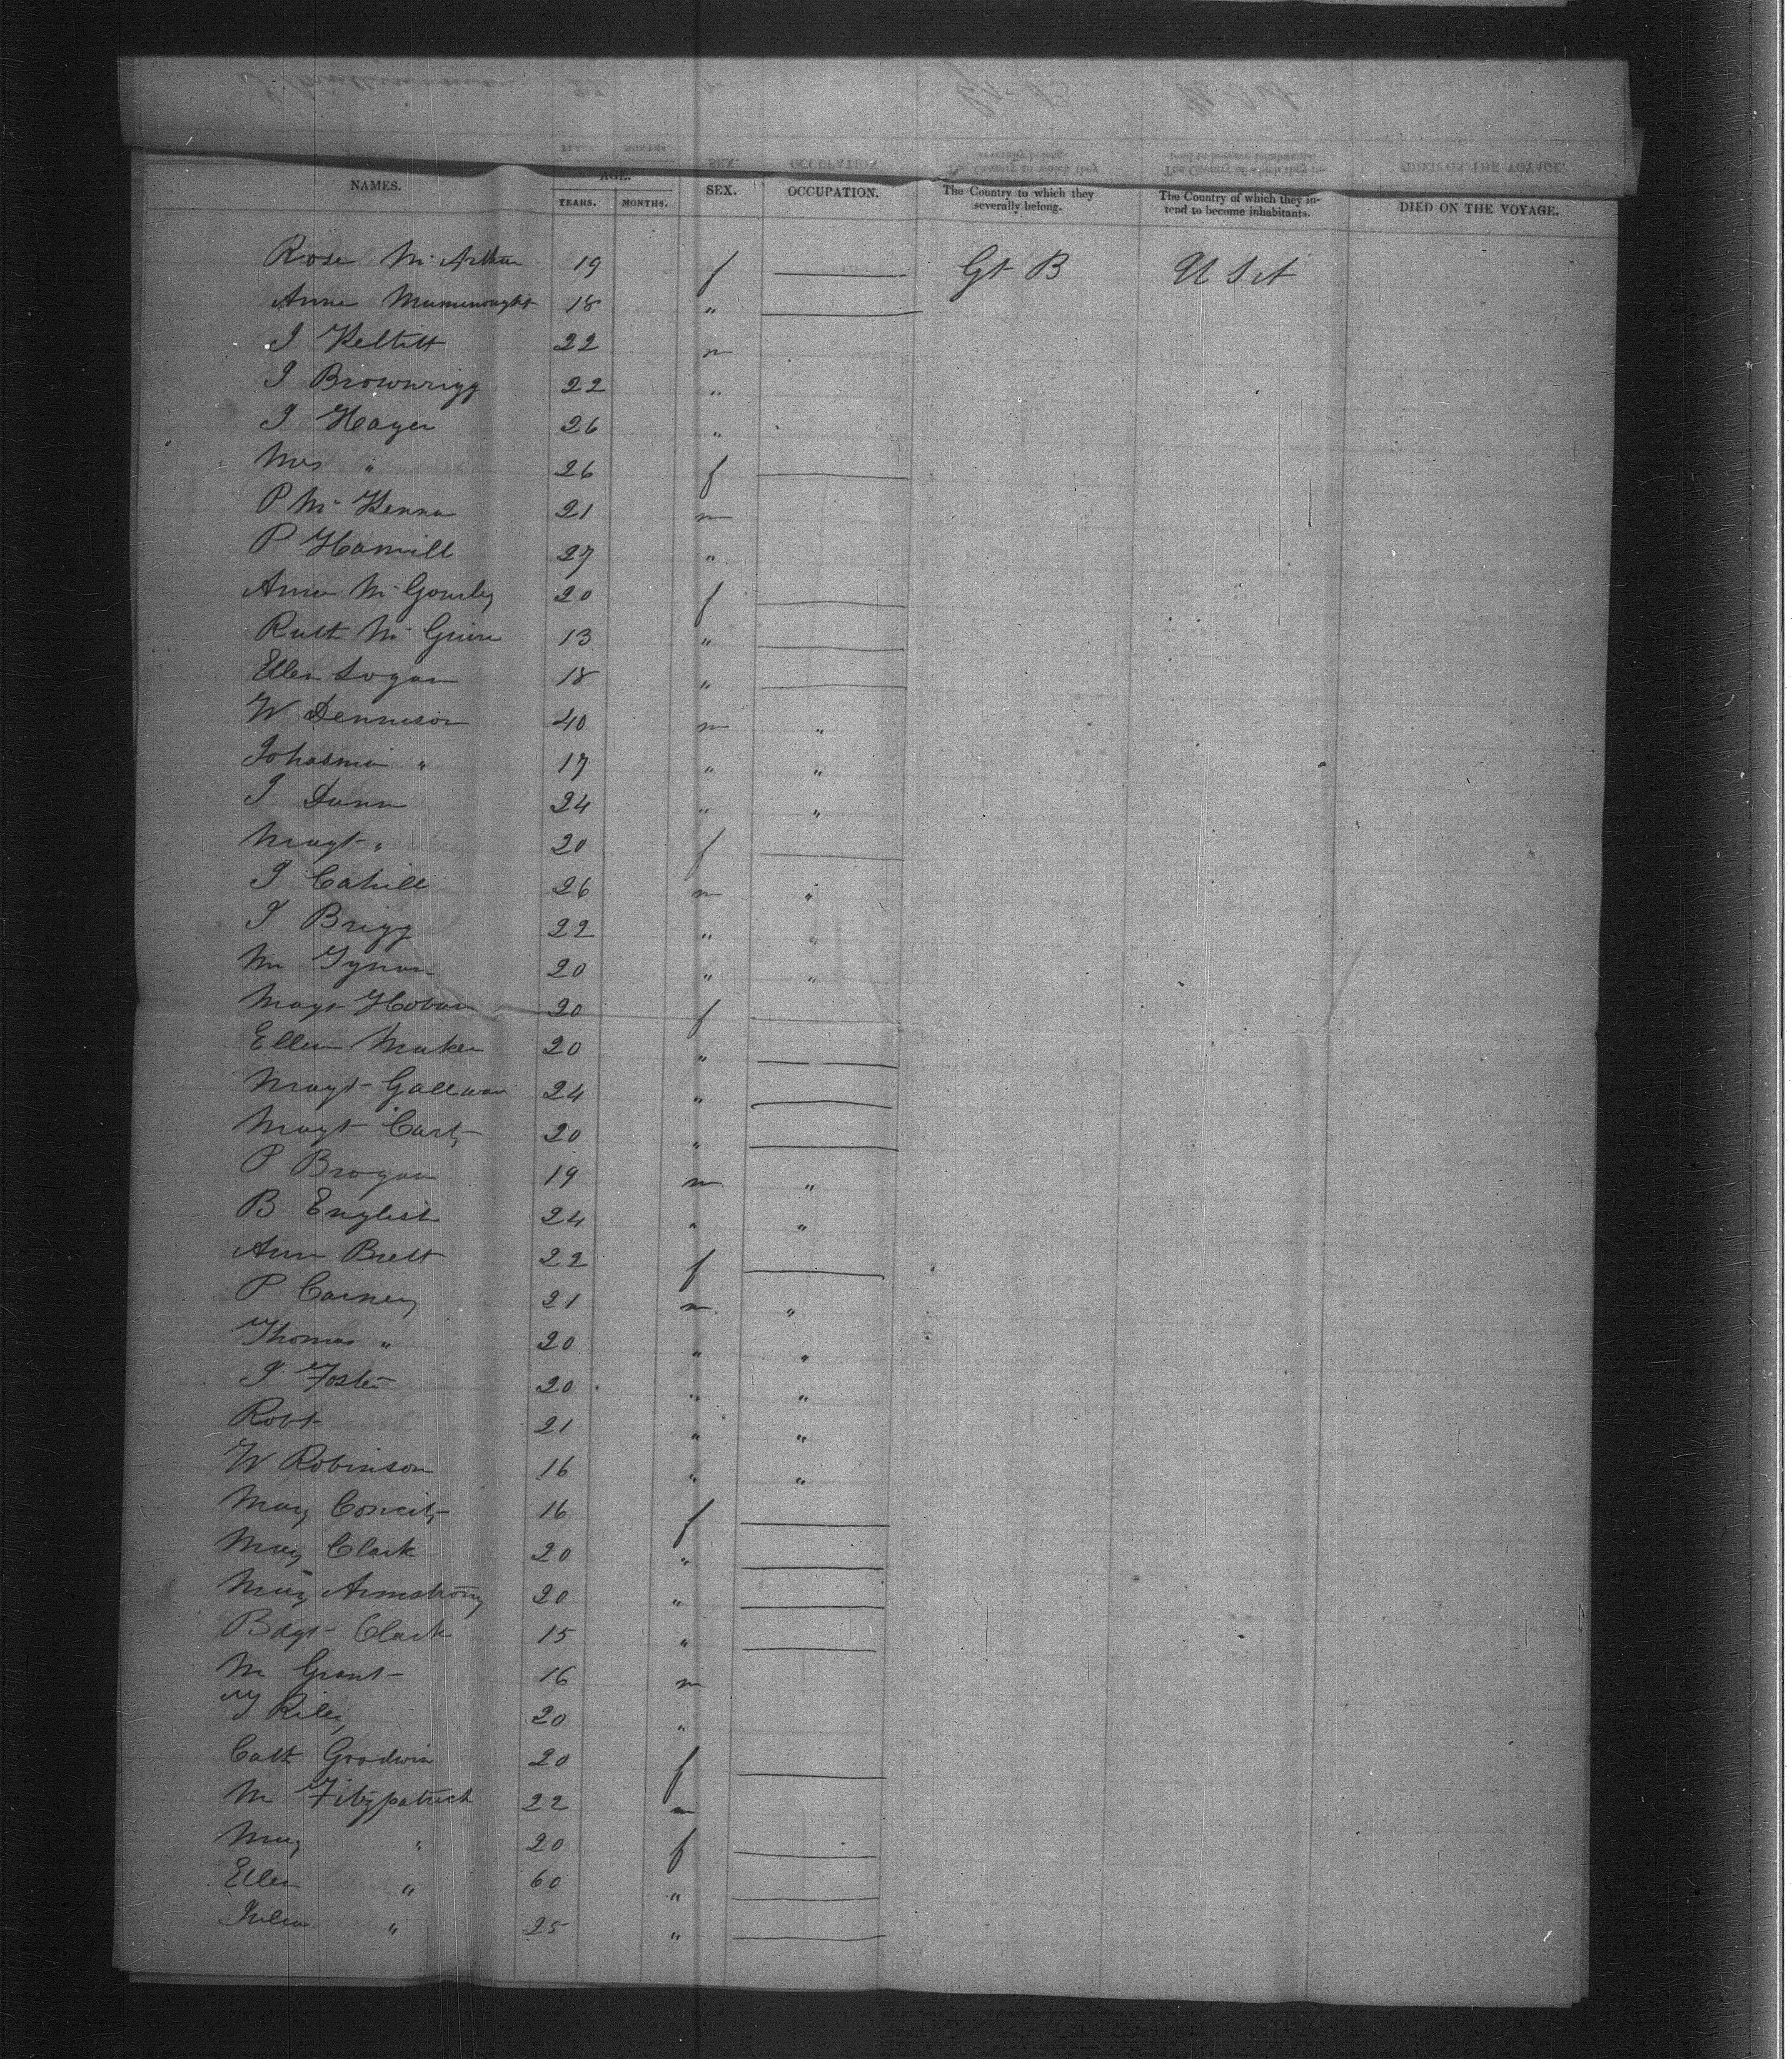 NAMES. AGE. SEX. OCCUPATION. The Country to which they severally belong. The Country of which they intend to become inhabitants. DIED ON THE VOYAGE.
YEARS. MONTHS.
Rose McArthur 19 f Gt B U S A
Anne 18 "
J 22 m
J Brownrigg 22 "
J Hayes 26 "
Mrs " 26 f
P McKenna 21 m
P Hamill 27 "
Anne McGourley 20 f
Ruth 13 "
Ellen Logan 18 "
W Dennison 40 m "
" 17 " "
J Dunn 24 " "
Magt " 20 f
J Cahill 26 m "
J Brigg 22 " "
M Tynan 20 " "
Magt Hoban 20 f
Ellen Maher 20 "
Magt Gallivan 24 "
Magt Carty 20 "
P Brogan 19 m "
B English 24 " "
Ann Brett 22 f
P Carney 21 m "
Thomas " 20 " "
J Foster 20 " "
Robt 21 " "
W Robinson 16 " "
Mary 16 f
Mary Clark 20 "
Mary Armstrong 20 "
Bdgt Clark 15 "
M Grant 16 m
T Riley 20 "
Cath Goodwin 20 f
M Fitzpatrick 22 m
Mary " 20 f
Ellen " 60 "
Julia " 25 "